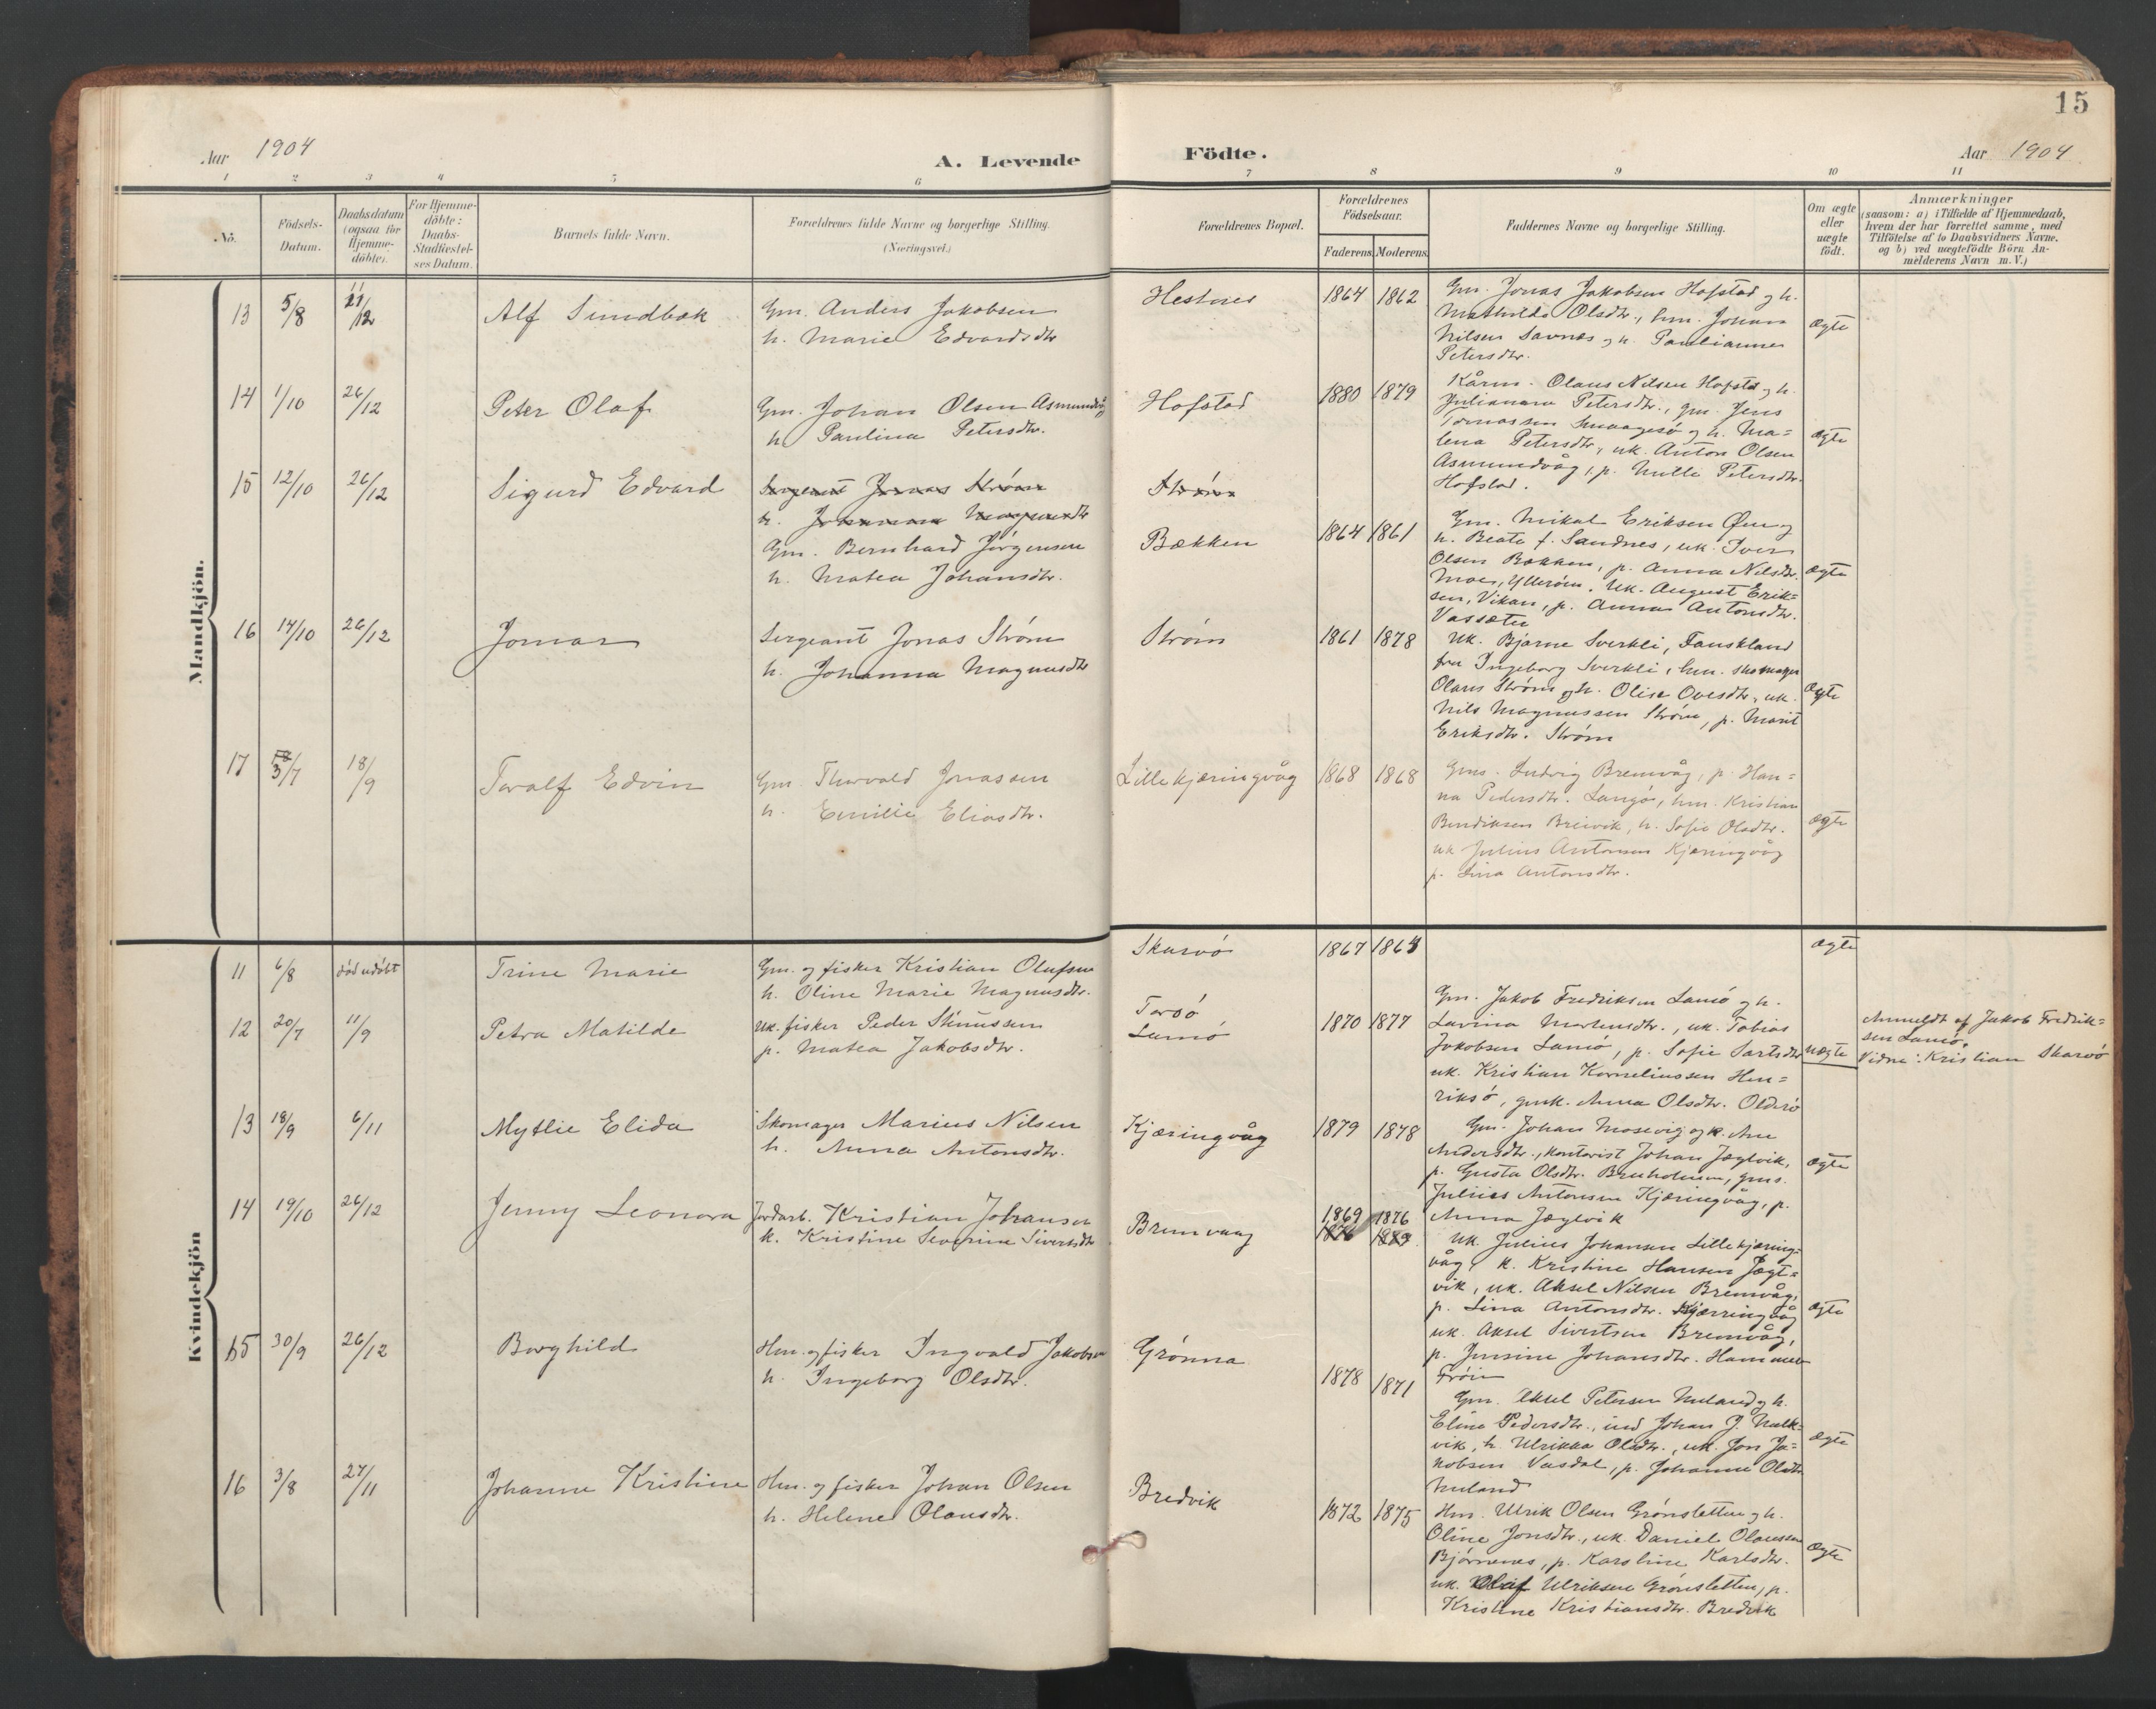 15
Aar 1904
A. Levende Födte.
Aar 1904
1 2 3 4 5 6 7 8 9 10 11
No.
Födsels-Datum.
Daabsdatum (ogsaa for Hjemme-döbte).
For Hjemme-döbte: Daabs-Stadfæstel-ses Datum.
Barnets fulde Navn.
Forældrenes fulde Navne og borgerlige Stilling. (Næringsvei.)
Forældrenes Bopæl.
Forældrenes Födselsaar.
Faderens. Moderens.
Faddernes Navne og borgerlige Stilling.
Om ægte eller uægte födt.
Anmærkninger
(saasom: a) i Tilfælde af Hjemmedaab, hvem der har forrettet samme, med Tilföielse af to Daabsvidners Navne, og b) ved uægtefödte Börn Anmelderens Navn m. V.)
Mandkjön.
13 5/8 11/12 Alf Sundbak
Gm. Anders Jakobsen
h. Marie Edvardsdtr
Hestnes 1864 1862
Gm. Jonas Jakobsen Hofstad og h.
Mathilde Olsdtr., hm. Johan
Nilsen Savnes og h. Paulianna
Petersdtr.
ægte
14 1/10 26/12 Peter Olaf
Gm. Johan Olsen Asmundvåg
h. Paulina Petersdtr.
Hofstad 1880 1879
Kårm. Olaus Nilsen Hofstad og h.
Julianna Petersdtr., gm. Jens
Tomassen og h. Ma=
lena Petersdtr., uk. Anton Olsen
Asmundvåg, p. Petersdtr.
Hofstad.
ægte
15 12/10 26/12 Sigurd Edvard
Sergeant Jonas Strøm
h. Johanna Magnusdtr
Gm. Bernhard Jørgensen
h. Matea Johansdtr.
Strøm
Bækken 1864 1861
Gm. Mikal Eriksen Øen og
h. Beate f. Sandnes, uk. Iver
Olsen Bækken, p. Anna Nilsdtr.
Moen, Ytterøen. Uk. August Erik=
sen, Vikan, p. Anna Antonsdtr.
Vassæter
ægte
16 14/10 26/12 Jomar
Sergeant Jonas Strøm
h. Johanna Magnusdtr
Strøm 1861 1878
Uk. Bjarne Sverkli, Fauskland
fru Ingeborg Sverkli, hm. skomager
Olaus Strøm og h. Olise Ovesdtr., uk.
Nils Magnussen Strøm, p. Marit
Eriksdtr. Strøm
ægte
17 3/7 18/9 Toralf Edvin
Gm. Thorvald Jonassen
h. Emilie Eliasdtr.
Lille kjæringvåg 1868 1868
Gms. Ludvig Bremvåg, p. Han=
na Pedersdtr. Langø, hm. Kristian
Bendiksen Breivik, h. Sofie Olsdtr.
uk Julius Antonsen Kjæringvåg
p. Lina Antonsdtr.
ægte
Kvindekjön
11 6/8 död udöbt Trine Marie
Gm. og fisker Kristian Olufsen
h. Oline Marie Magnusdtr.
Skarvø 1867 1864
ægte
12 20/7 11/9 Petra Matilde
Uk. fisker Peder Stinussen
p. Matea Jakobsdtr.
Torsø
Lamø 1870 1877
Gm. Jakob Fredriksen Lamø og h.
Lavina Martensdtr., uk. Tobias
Jakobsen Lamø, p. Sofie Sartsdtr
uk. Kristian Korneliussen Hen=
riksø, gmk. Anna Olsdtr. Oldersø
uægte
Anmeldt af Jakob Fredrik=
sen Lamø.
Vidne: Kristian Skarvø
13 18/9 6/11 Mytlie Elida
Skomager Marius Nilsen
h. Anna Antonsdtr.
Kjæringvåg 1879 1878
Gm. Johan Mosevig og k. Ane
Andersdtr., kontorist Johan Jægtvik,
p. Gusta Olsdtr. Bruholmen, gms.
Julius Antonsen Kjæringvåg, p.
Anna Jægtvik
ægte
14 19/10 26/12 Jenny Leonora
Jordarb. Kristian Johansen
k. Kristine Severine Sivertsdtr
Bremvaag 1869 1876
1876 1889
Uk. Julius Johansen Lille kjæring=
våg, k. Kristine Hansen Jægt=
vik, uk. Aksel Nilsen Bremvåg,
p. Lina Antonsdtr. Kjærringvåg
uk. Aksel Sivertsen Bremvåg,
p. Jensine Johansdtr. Hammer
Frøien
ægte
15 30/9 26/12 Borghild
Hm. og fisker Ingvald Jakobsen
h. Ingeborg Olsdtr.
Grønna 1878 1871
Gm. Aksel Petersen Uuland og h.
Eline Pedersdtr., ind Johan J
vik, h. Ulrikka Olsdtr., uk. Jon Ja=
kobsen Vasdal, p. Johanna Olsdtr.
Uuland
ægte
16 3/8 27/11 Johanne Kristine
Hm. og fisker Johan Olsen
h. Helene Olausdtr.
Bredvik 1872 1875
Hm. Ulrik Olsen Grønsletten og h.
Oline Jonsdtr., uk. Daniel Olaussen
Bjørnenes, p. Karoline Karlsdtr.
uk. Olaf Ulriksen Grønsletten, p.
Kristine Kristiansdtr. Bredvik
ægte